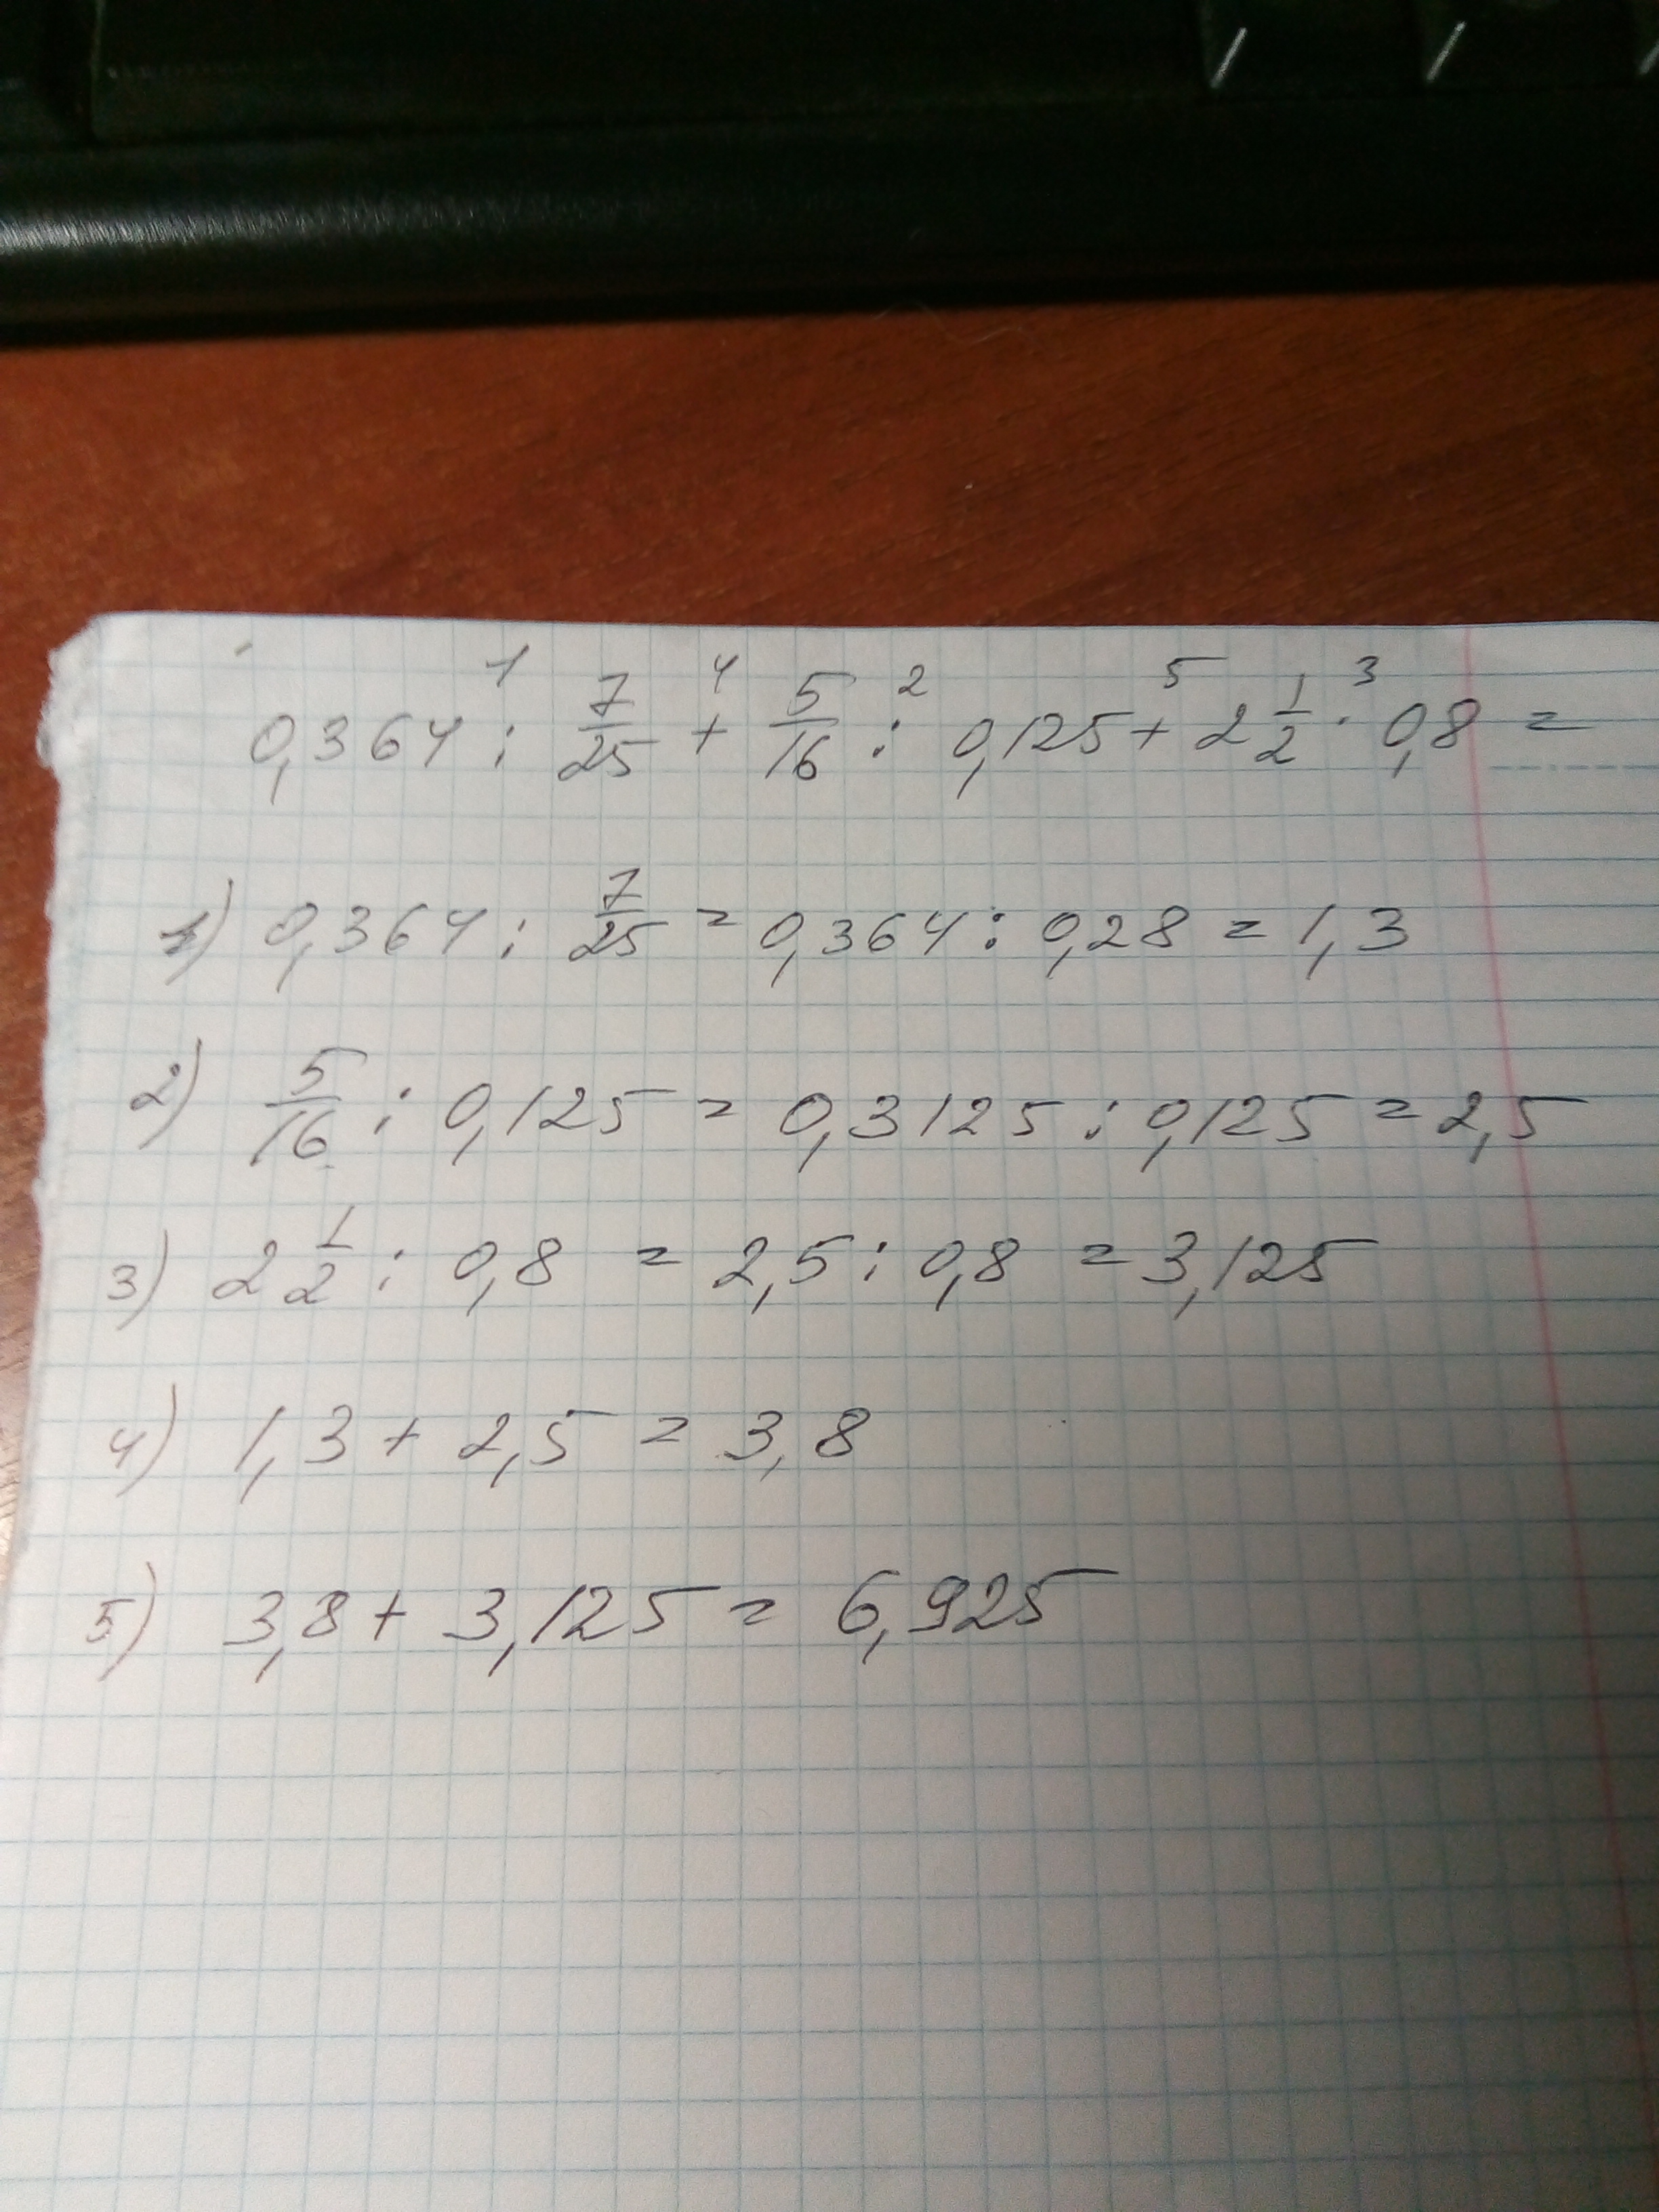 1 4 2 5 3
0,364 : 7/25 + 5/16 : 0,125 + 2 1/2 · 0,8 =
1) 0,364 : 7/25 = 0,364 : 0,28 = 1,3
2) 5/16 : 0,125 = 0,3125 : 0,125 = 2,5
3) 2 1/2 : 0,8 = 2,5 : 0,8 = 3,125
4) 1,3 + 2,5 = 3,8
5) 3,8 + 3,125 = 6,925